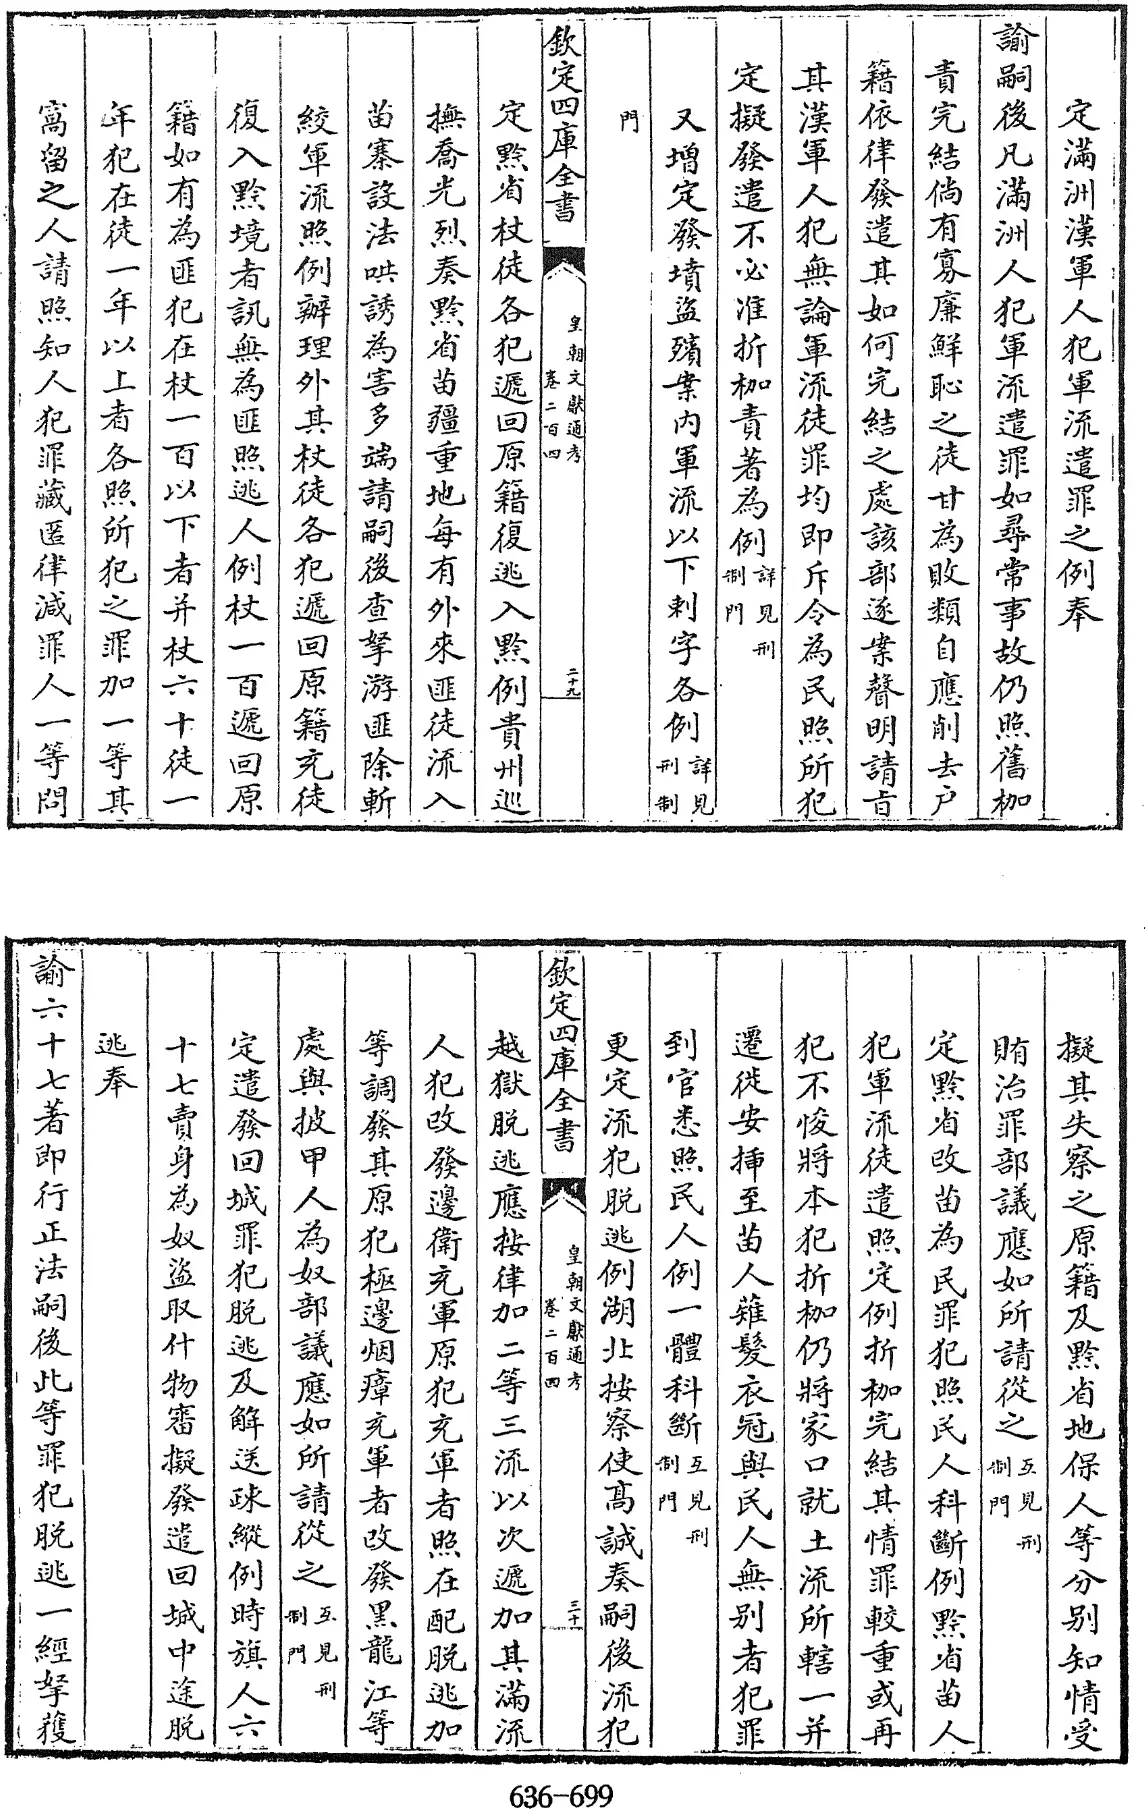 定滿洲漢軍人犯軍流遣罪之例奉
諭嗣後凡滿洲人犯軍流遣罪如尋常事故仍照舊枷
責完結倘有寡廉鮮恥之徒甘為敗類自應削去户
籍依律發遣其如何完結之處該部逐案聲明請㫖
其漢軍人犯無論軍流徒罪均即斥令為民照所犯
定擬發遣不必准折枷責著為例詳見刑
制門
又增定發墳盜殯案内軍流以下刺字各例詳見
刑制
門
欽定四庫全書
皇朝文獻通考
卷二百四
二十九
定黔省杖徒各犯遞回原籍復逃入黔例貴州巡
撫喬光烈奏黔省苗疆重地每有外來匪徒流入
苗寨設法哄誘為害多端請嗣後查拏游匪除斬
絞軍流照例辦理外其杖徒各犯遞回原籍充徒
復入黔境者訊無為匪照逃人例杖一百遞回原
籍如有為匪犯在杖一百以下者并杖六十徒一
年犯在徒一年以上者各照所犯之罪加一等其
窩留之人請照知人犯罪藏匿律減罪人一等問
擬其失察之原籍及黔省地保人等分别知情受
賄治罪部議應如所請從之互見刑
制門
定黔省改苗為民罪犯照民人科斷例黔省苗人
犯軍流徒遣照定例折枷完結其情罪較重或再
犯不悛將本犯折枷仍將家口就土流所轄一并
遷徙安揷至苗人薙髮衣冠與民人無别者犯罪
到官悉照民人例一體科斷互見刑
制門
更定流犯脱逃例湖北按察使高誠奏嗣後流犯
欽定四庫全書
皇朝文獻通考
卷二百四
三十
越獄脱逃應按律加二等三流以次遞加其滿流
人犯改發邊衛充軍原犯充軍者照在配脱逃加
等調發其原犯極邊烟瘴充軍者改發黑龍江等
處與披甲人為奴部議應如所請從之互見刑
制門
定遣發回城罪犯脱逃及解送疎縱例時旗人六
十七賣身為奴盜取什物審擬發遣回城中途脱
逃奉
諭六十七著即行正法嗣後此等罪犯脱逃一經拏獲
636-699